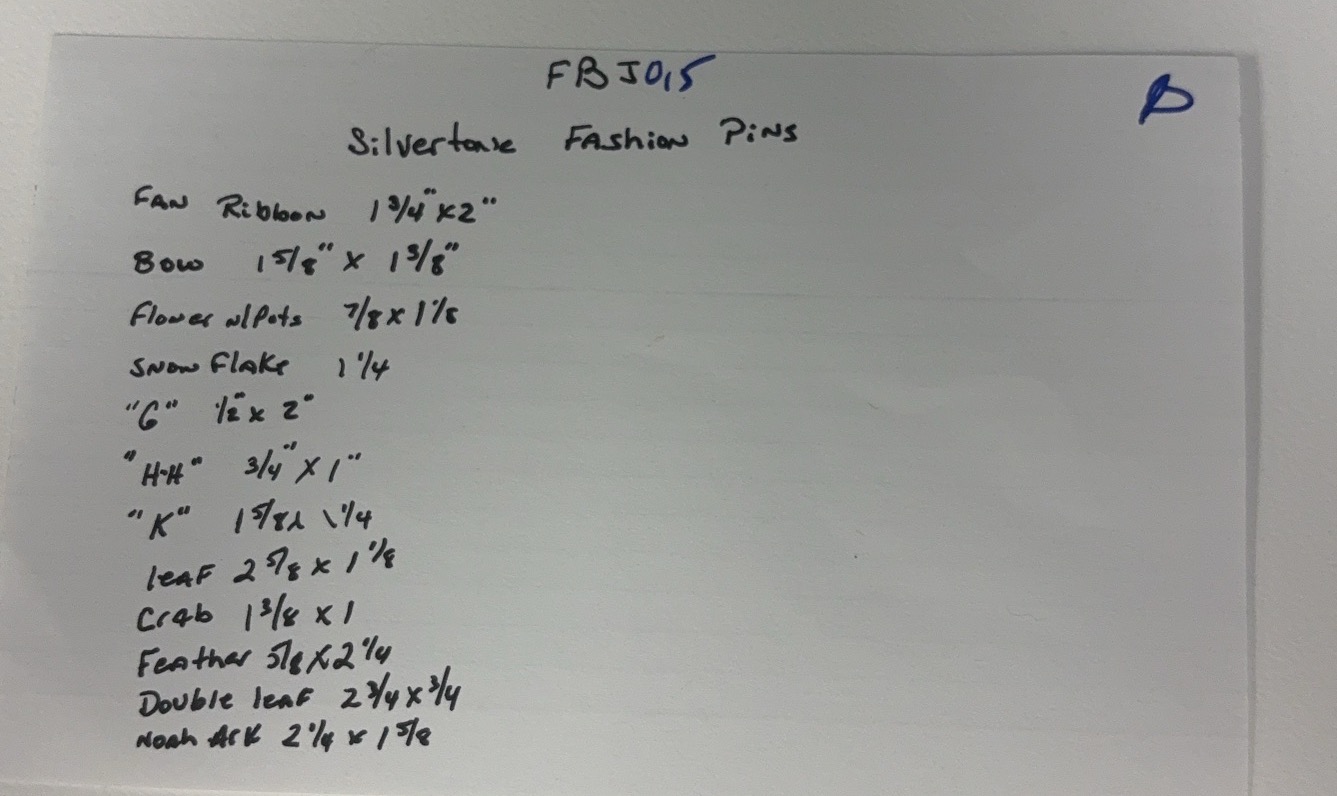 FBJ015
B
Silvertone Fashion Pins
FAN Ribbon 1 3/4" x 2"
Bow 1 5/8" x 1 3/8"
Flower w/Pots 7/8 x 1 1/8
Snow Flake 1 1/4
"G" 1/2" x 2"
"H-H" 3/4" X 1"
"K" 1 5/8 x 1 1/4
leaf 2 5/8 x 1 1/8
Crab 1 3/8 x 1
Feather 5/8 X 2 1/4
Double leaf 2 3/4 x 3/4
Noah Ark 2 1/4 x 1 5/8